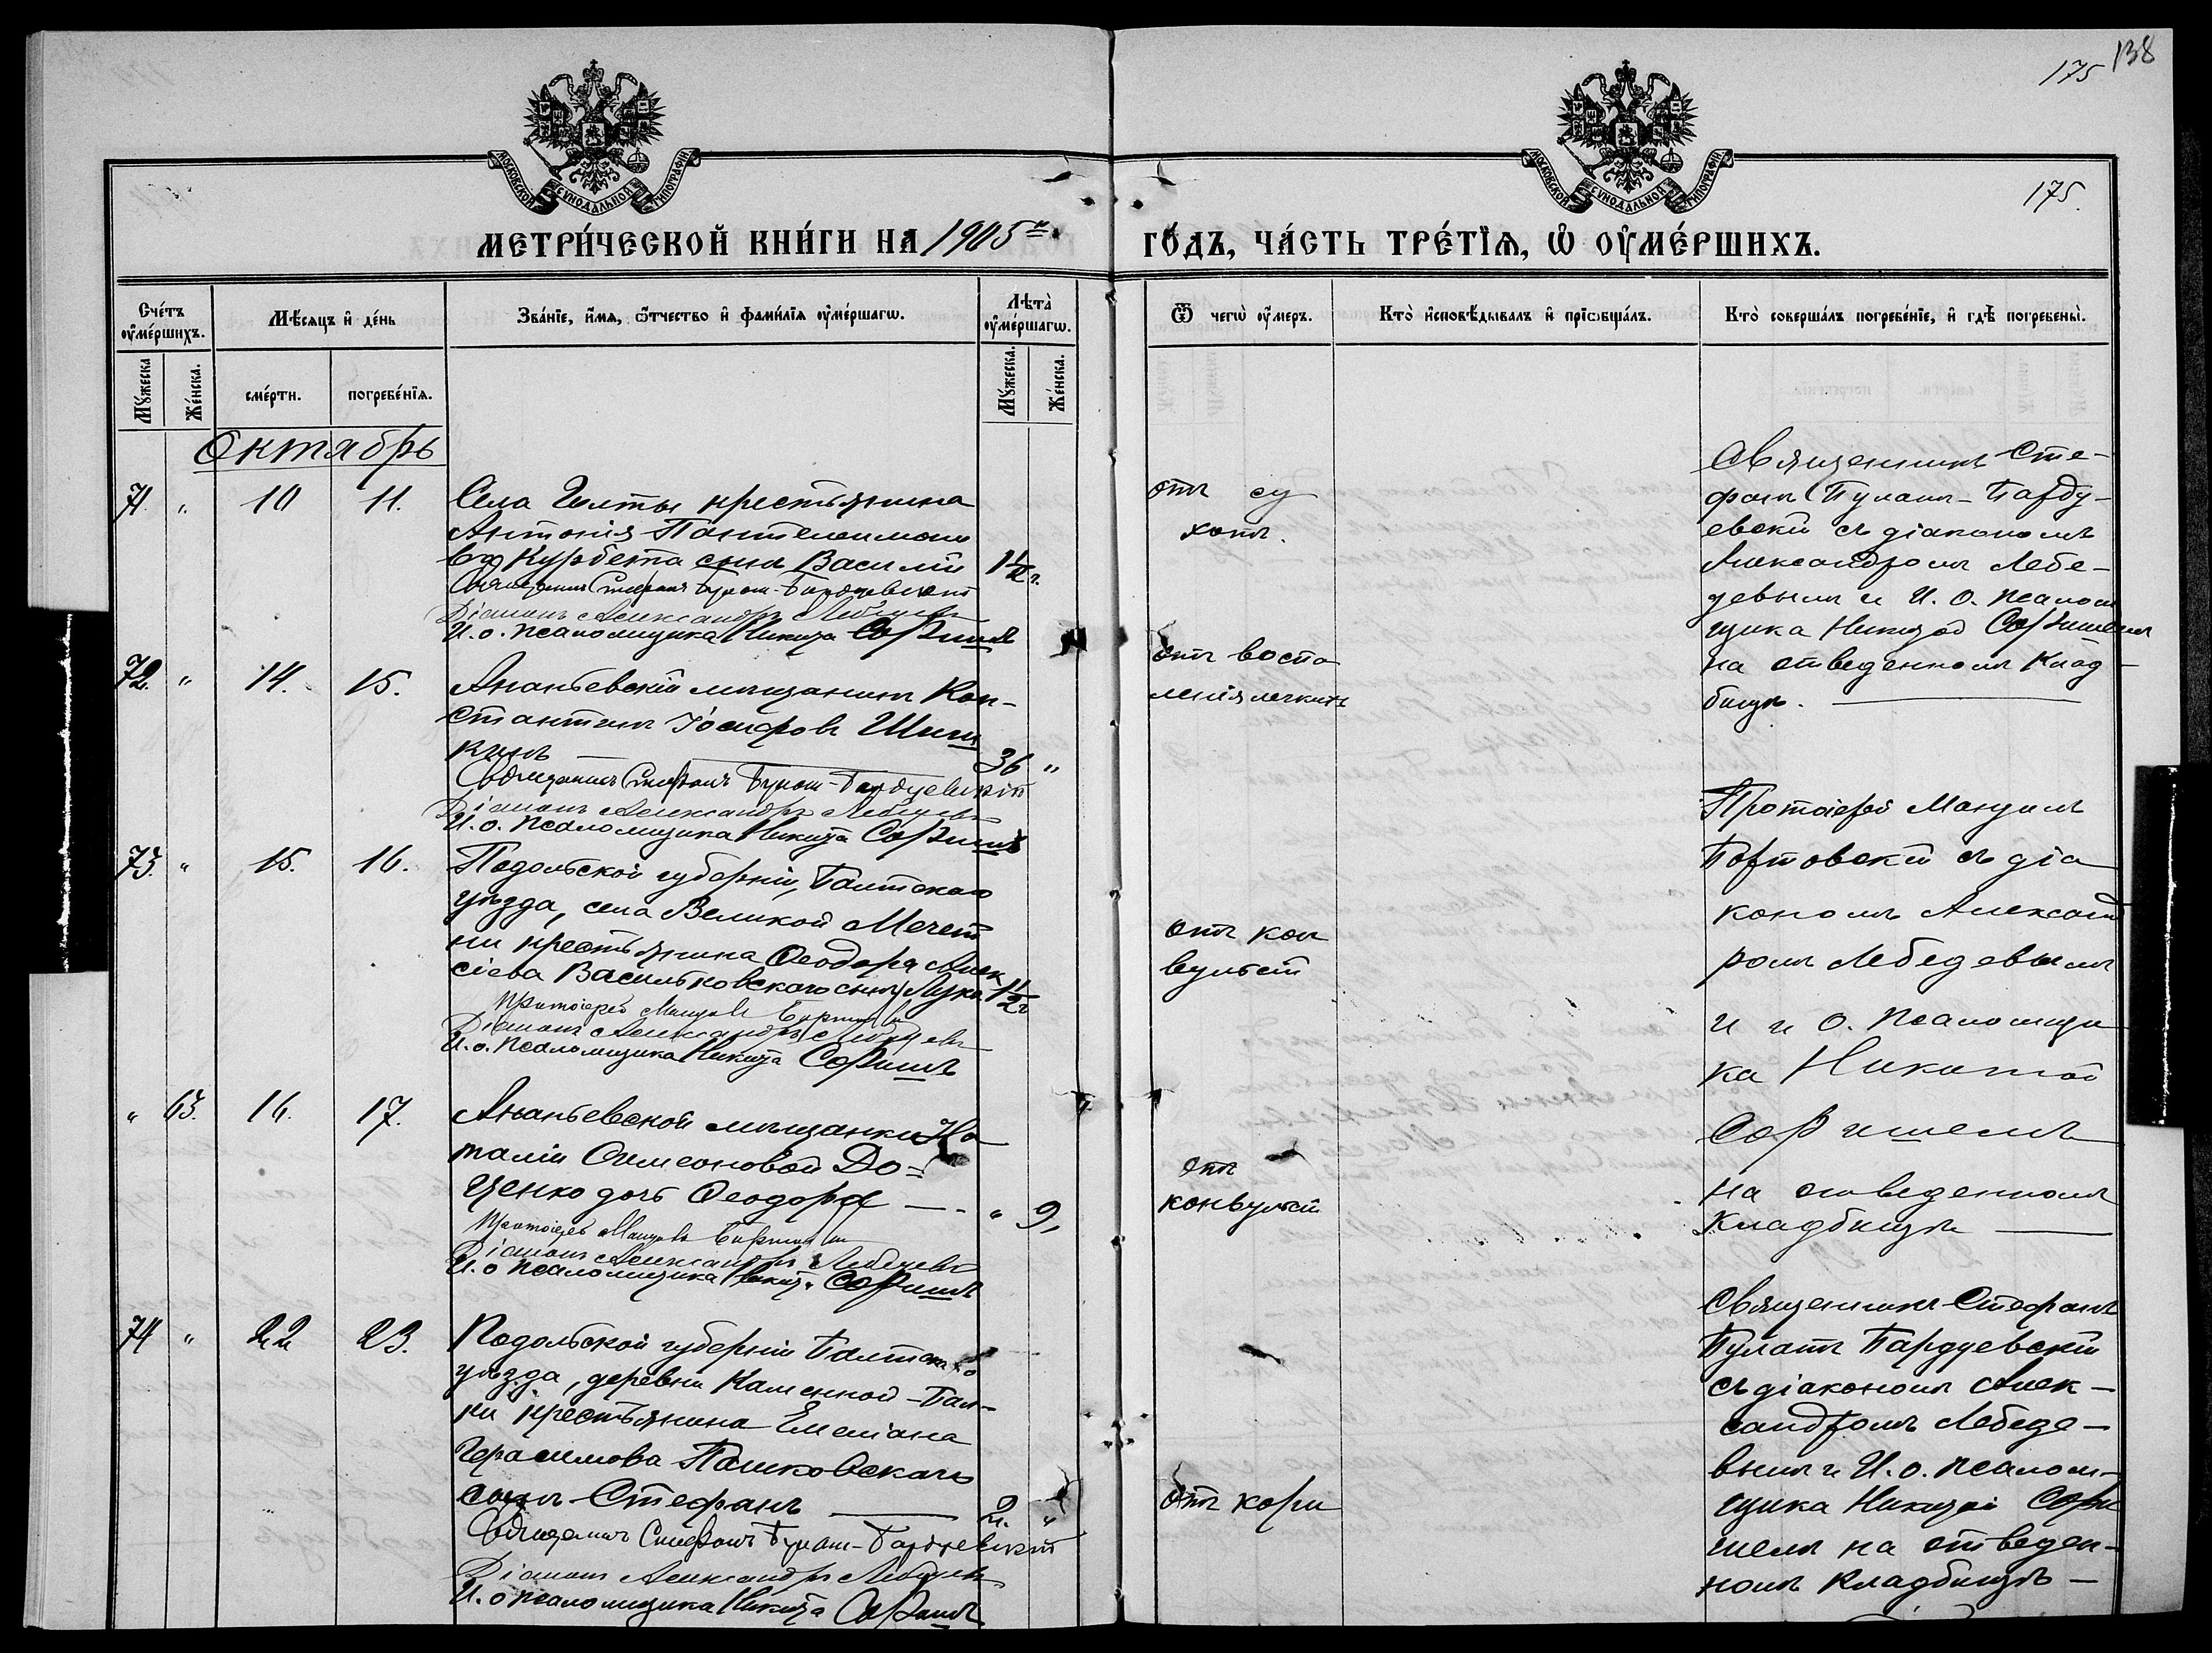 138
175
МОСКОВСКОЙ СУНОДАЛЬНОЙ ТИПОГРАФІИ
МОСКОВСКОЙ СУНОДАЛЬНОЙ ТИПОГРАФІИ
175.
МЕТРИ́ЧЕСКОЙ КНИ́ГИ НА 1905й
ГО́ДЪ, ЧА́СТЬ ТРЕ́ТІѦ, Ѡ ОУМЕ́РШИХЪ.
Сче́тъ оумершихъ.
Мѣ́сяцъ и де́нь
Зва́нїе, и́мя, ѻтчество и фами́лїя оуме́ршагѡ.
Лѣта̀ оуме́ршагѡ.
Ѿ чегѡ̀ оу́меръ.
Кто̀ исповѣ́дывалъ и прїѡбща́лъ.
Кто̀ соверша́лъ погребе́нїе, и гдѣ̀ погребены̀.
Му́жеска
Же́нска.
сме́рти.
погребе́нїя.
Му́жеска.
Же́нска.
Октябрь
71. " 10 11.
Села Голты крестьянина
Антонія Пантелеимоно
ва Курбета сынъ Василій 1½ г.
Священникъ Стефанъ Булат-Бардуевскій
Діаконъ Александръ Лебедевъ
И.о. псаломщика Никита Соришъ
отъ су
хотъ.
Священникъ Сте-
фанъ Булатъ-Барду-
евскій съ діакономъ
Александромъ Лебе-
девымъ и И.О. псалом
щика Никитой
на отведенномъ клад-
бищѣ.
72. " 14. 15.
Ананьевскій мѣщанинъ Кон-
стантинъ Іосифовъ Шиш
кинъ 36 "
Священникъ Стефанъ Булат-Бардуевскій
Діаконъ Александръ Лебедевъ
И.о. псаломщика Никита Соришъ
отъ воспа
ленія легкихъ
73. " 15. 16.
Подольской губерніи, Балтскаго
уѣзда, села Великой Мечет
ни крестьянина Ѳеодора Алек
сіева Васильковскаго сынъ Лука 1½ г
Протоіерей
Діаконъ Александръ Лебедевъ
И.о. псаломщика Никита Соришъ
отъ кон
вульсій
Протоіерей Мануилъ
Бортовскій съ діа
кономъ Александ
ромъ Лебедевымъ
и и о. псаломщи
ка Никитой
Соришемъ
на отведенномъ
кладбищѣ
" 63. 16. 17.
Ананьевской мѣщанки На
таліи Симеоновой До-
ценко дочь Ѳеодора " 9,
Протоіерей
Діаконъ Александръ Лебедевъ
И.о псаломщика Никита Соришъ
отъ
конвульсій
74 " 22 23.
Подольской губерніи Балтскаго
уѣзда, деревни Каменной-Бал-
ки крестьянина Емеліана
Герасимова Пашковскаго
сынъ Стефанъ 2. "
Священникъ Стефанъ Булат-Бардуевскій
Діаконъ Александръ Лебедевъ
И.о псаломщика Никита Соришъ
отъ кори
Священникъ Стефанъ
Булатъ Бардуевскій
съ діакономъ Алек-
сандромъ Лебеде-
вымъ и И.о. псалом-
щика Никитой Сори
шемъ на отведен-
номъ кладбищѣ